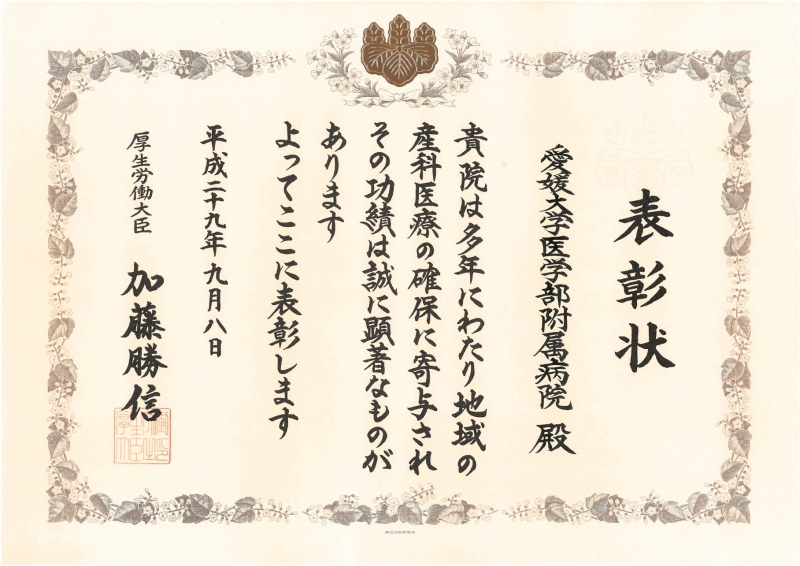 表彰状
愛媛大学医学部附属病院 殿
貴院は多年にわたり地域の
産科医療の確保に寄与され
その功績は誠に顕著なものが
あります
よってここに表彰します
平成二十九年九月八日
厚生労働大臣 加藤勝信